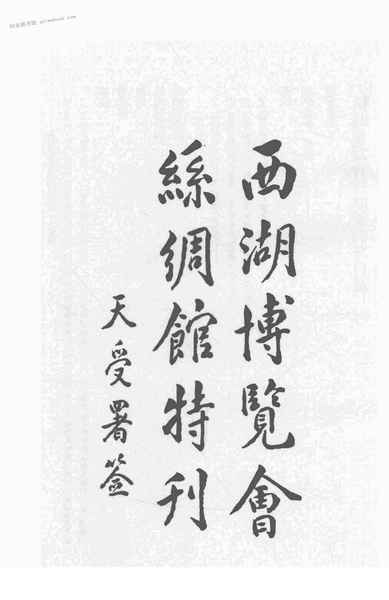 西湖博覽會
絲綢館特刊
天受署签